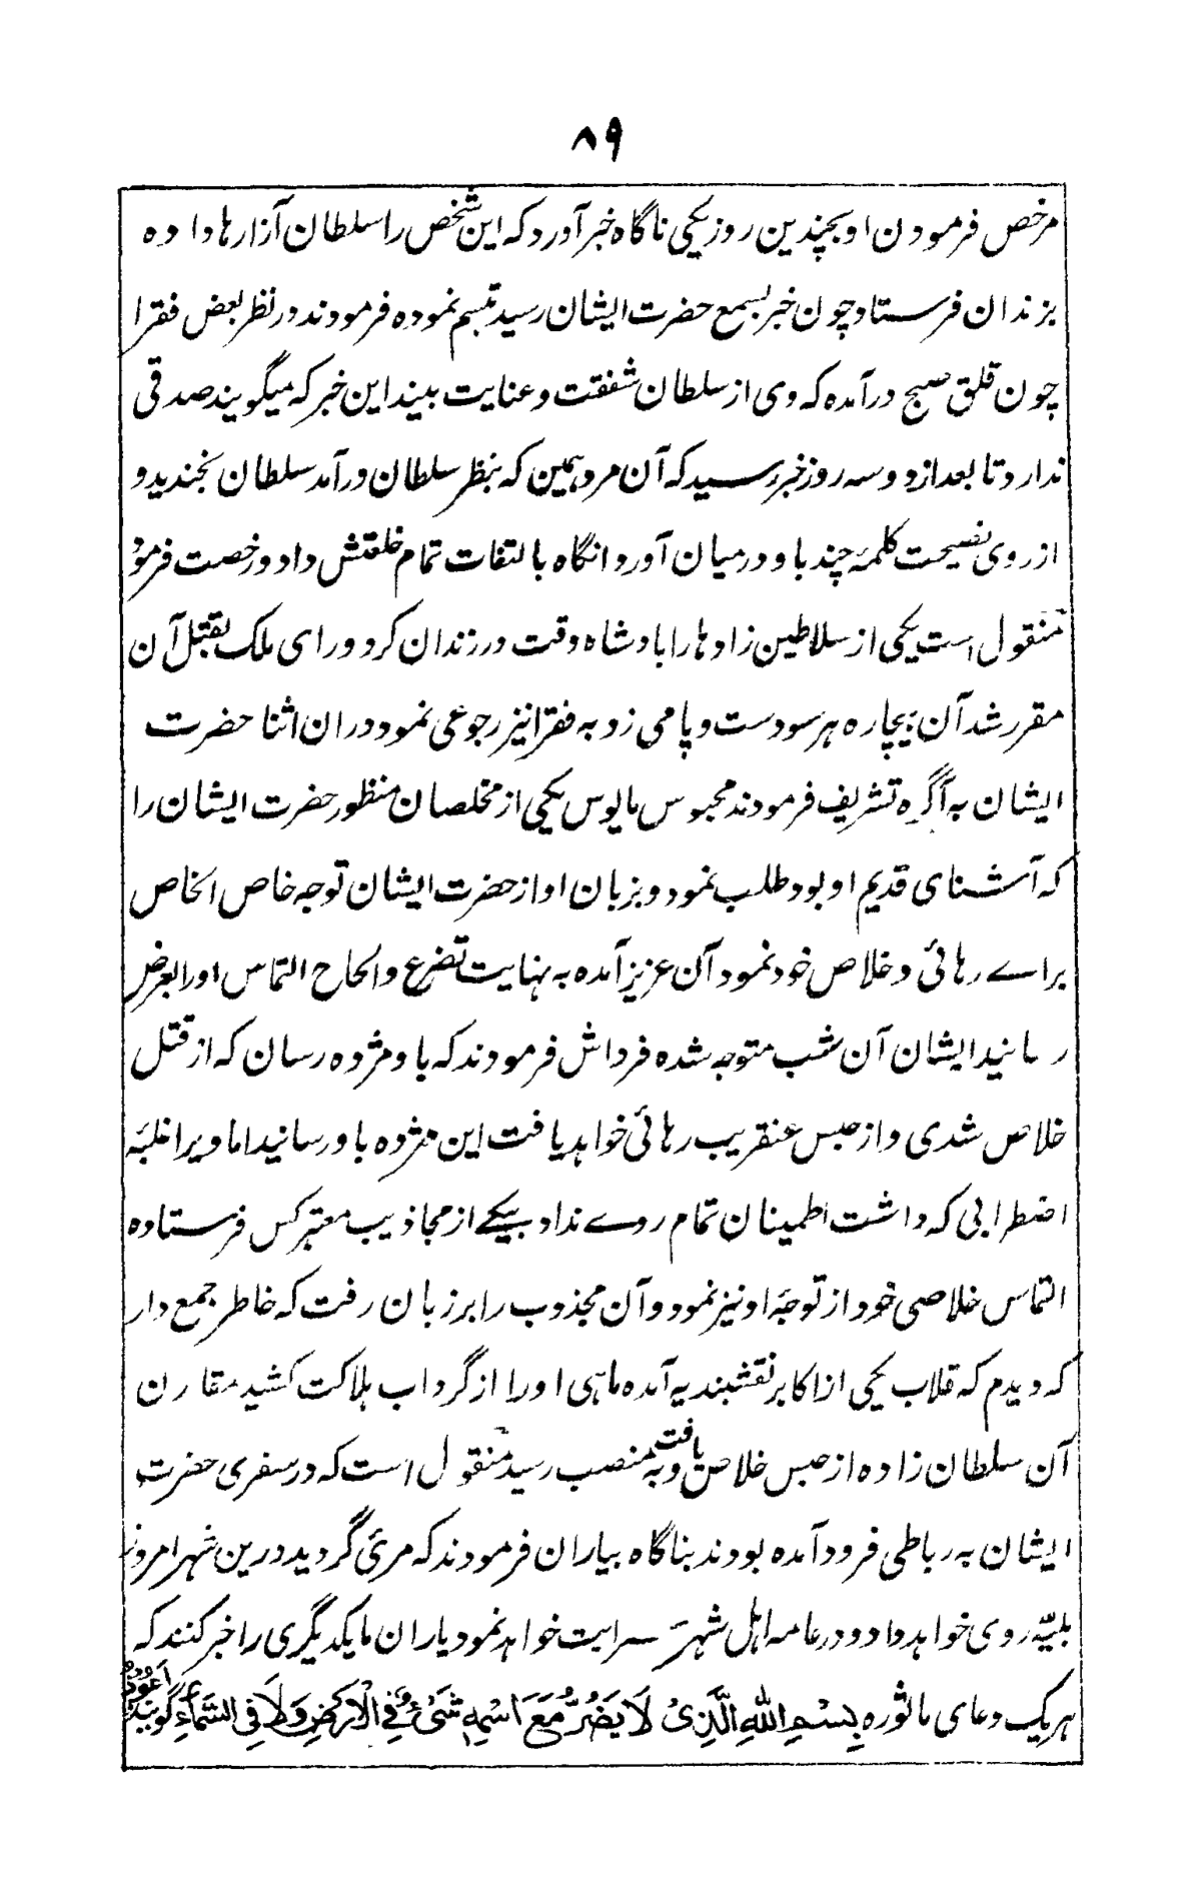 ۸۹
مرخص فرمودن او بچندین روز یکی ناگاه خبر آورد که این شخص را سلطان آزارها داده
بزندان فرستاد چون خبر بسمع حضرت ایشان رسید تبسم نموده فرمودند در نظر بعض فقرا
چون فلق صبح درآمده که وی از سلطان شفقت و عنایت بیند این خبر که میگویند صدقی
ندارد تا بعد از دو سه روز خبر رسید که آن مرد همین که بنظر سلطان درآمد سلطان بخندید و
از روی نصیحت کلمهٔ چند با و درمیان آورد انگاه بالتفات تمام خلعتش داد و رخصت فرمود
منقول است یکی از سلاطین زادها را بادشاه وقت در زندان کرد و رای ملک بقتل آن
مقرر شد آن بیچاره هر سو دست و پا می زد به فقرا نیز رجوعی نمود دران اثنا حضرت
ایشان به آگره تشریف فرمودند محبوس مایوس یکی از مخلصان منظور حضرت ایشان را
که آشنای قدیم او بود طلب نمود و بزبان او از حضرت ایشان توجه خاص الخاص
براے رهائی و خلاص خود نمود آن عزیز آمده به نهایت تضرع والحاح التماس اورا بعرض
رسانید ایشان آن شب متوجه شده فرداش فرمودند که با و مژده رسان که از قتل
خلاص شدی و از حبس عنقریب رهائی خواهد یافت این مژده با و رسانید اما ویرا غلبهٔ
اضطرابی که داشت اطمینان تمام روے نداد بیکے از مجاذیب معتبر کس فرستاده
التماس خلاصی خود از توجهٔ او نیز نمود و آن مجذوب را بر زبان رفت که خاطر جمع دار
که دیدم که قلاب یکی از اکابر نقشبندیه آمده ماهی اورا از گرداب هلاکت کشید مقارن
آن سلطان زاده از حبس خلاص یافت و به منصب رسید منقول است که در سفری حضرت
ایشان به رباطی فرود آمده بودند بناگاه بیاران فرمودند که مرئ گردید درین شهر امروز
بلیّه روی خواهد داد و در عامه اهل شهر سرایت خواهد نمود یاران ما یکدیگری را خبر کنند که
هریک دعای ماثوره بِسْمِ اللهِ الَّذِیْ لَا یَضُرُّ مَعَ اسْمِهٖ شَیْءٌ فِی الْاَرْضِ وَلَا فِی السَّمَاءِ گویند و اَعُوْذُ